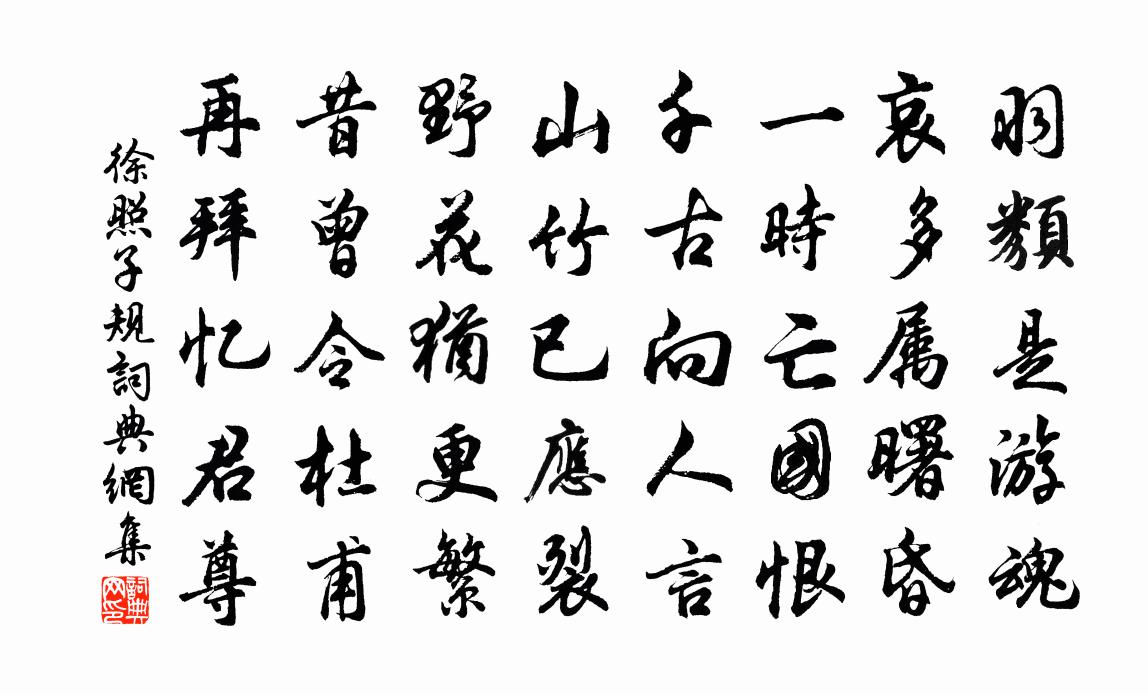 羽類是游魂
哀多属曙昏
一時亡國恨
千古向人言
山竹已應裂
野花猶更繁
昔曾令杜甫
再拜忆君尊
徐照子规詞典網集
詞典网印